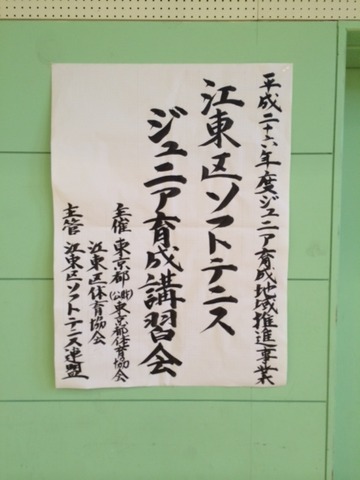 平成二十六年度ジュニア育成地域推進事業
江東区ソフトテニス
ジュニア育成講習会
主催 東京都
(公財)東京都体育協会
江東区体育協会
主管 江東区ソフトテニス連盟